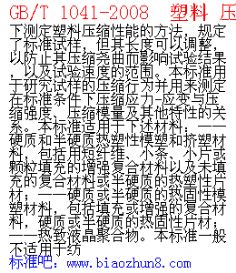 GB/T 1041-2008 塑料 压
下测定塑料压缩性能的方法，规定
了标准试样，但其长度可以调整，
以防止其压缩尧曲而影响试验结果
，以及试验速度的范围。本标准用
于研究试样的压缩行为并用来测定
在标准条件下压缩应力-应变与压
缩强度、压缩模量及其他特性的关
系。本标准适用于下述材料：——
硬质和半硬质热塑性模塑和挤塑材
料，包括用短纤维、小条、小片或
颗粒填充的增强复合材料以及未填
充的复合材料或半硬质的热塑性片
材；——硬质或半硬质的热固性模
塑材料，包括填充或增强的复合材
料，硬质或半硬质的热固性片材；
——热致液晶聚合物。本标准一般
不适用于纺
标准吧：www.biaozhun8.com